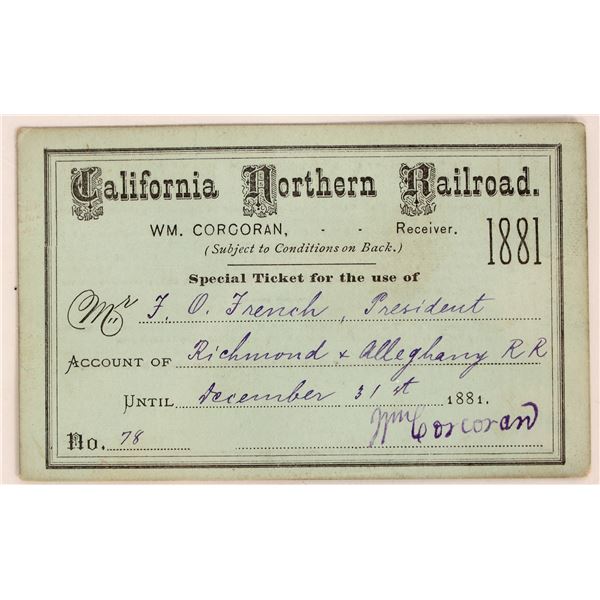 California Northern Railroad.
WM. CORCORAN, - - Receiver.
(Subject to Conditions on Back.)
1881
Special Ticket for the use of
Mr F. O. French, President
ACCOUNT OF Richmond & Alleghany R R
UNTIL December 31st 1881.
No. 78 Wm Corcoran